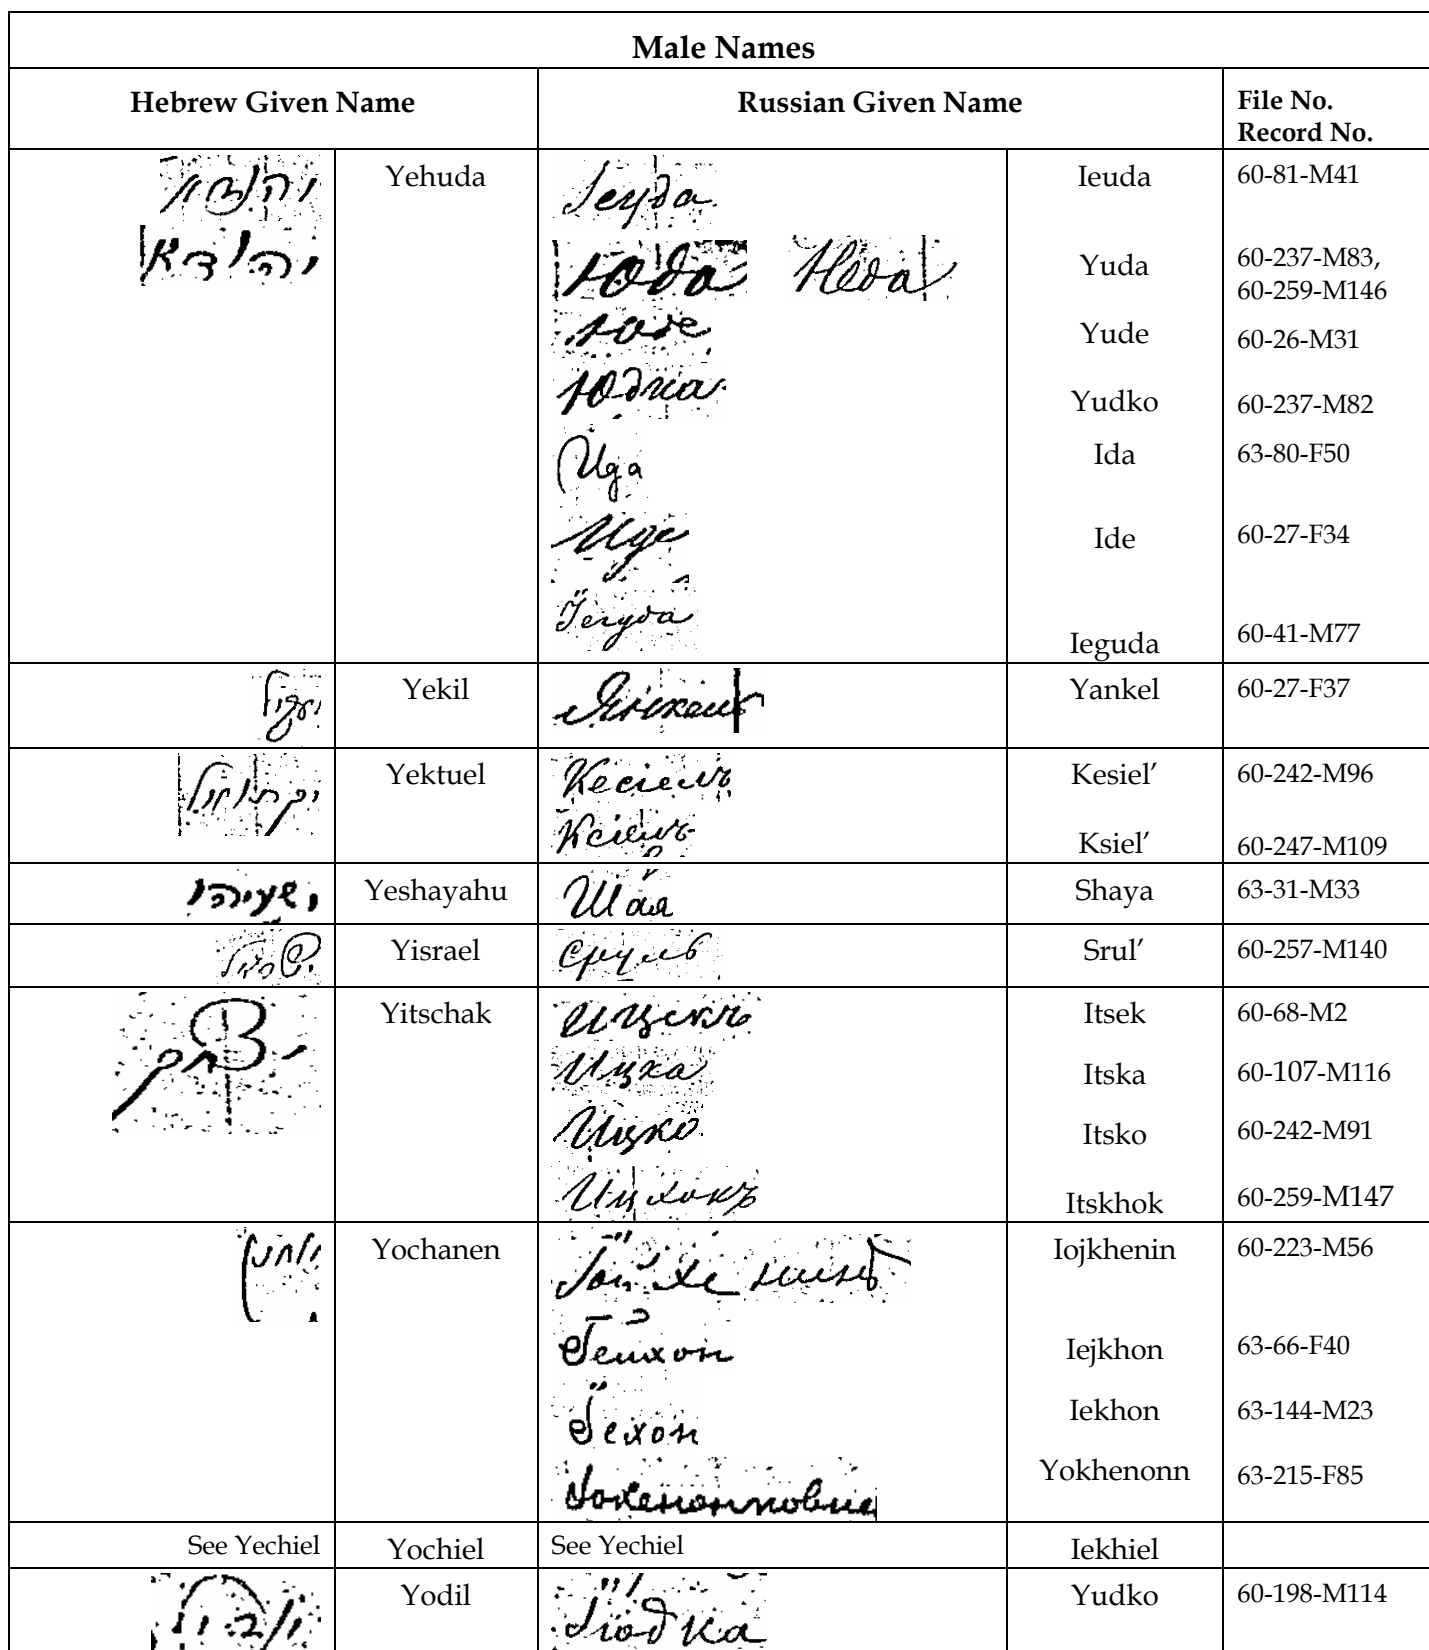 Male Names
Hebrew Given Name Russian Given Name File No. Record No.
יהודא Yehuda Іеуда Ieuda 60-81-M41
יהודא Юда Юда Yuda 60-237-M83, 60-259-M146
Юде Yude 60-26-M31
Юдка Yudko 60-237-M82
Ида Ida 63-80-F50
Иде Ide 60-27-F34
Іегуда Ieguda 60-41-M77
Yekil Янкель Yankel 60-27-F37
יקתואל Yektuel Кесіель Kesiel’ 60-242-M96
Ксіель Ksiel’ 60-247-M109
ישעיהו Yeshayahu Шая Shaya 63-31-M33
ישראל Yisrael Сруль Srul’ 60-257-M140
יצחק Yitschak Ицекъ Itsek 60-68-M2
Ицка Itska 60-107-M116
Ицко Itsko 60-242-M91
Ицхокъ Itskhok 60-259-M147
יוחנן Yochanen Іойхенинъ Iojkhenin 60-223-M56
Іейхон Iejkhon 63-66-F40
Іехон Iekhon 63-144-M23
Yokhenonn 63-215-F85
See Yechiel Yochiel See Yechiel Iekhiel
Yodil Yudko 60-198-M114